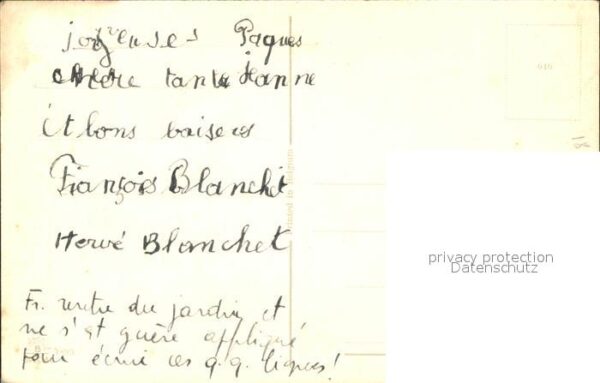 joyeuses Paques
chère tante Jeanne
Et bons baisers
François Blanchet
Hervé Blanchet
Fr. rentre du jardin et
ne s'est guère appliqué
pour écrire ces q.q. lignes!
Printed in Belgium
616
privacy protection
Datenschutz